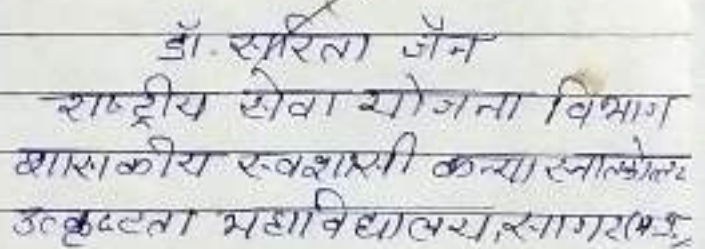 डॉ. सरिता जैन
राष्ट्रीय सेवा योजना विभाग
शासकीय स्वशासी कन्या स्नातकोत्तर
उत्कृष्टता महाविद्यालय, सागर (म.प्र.